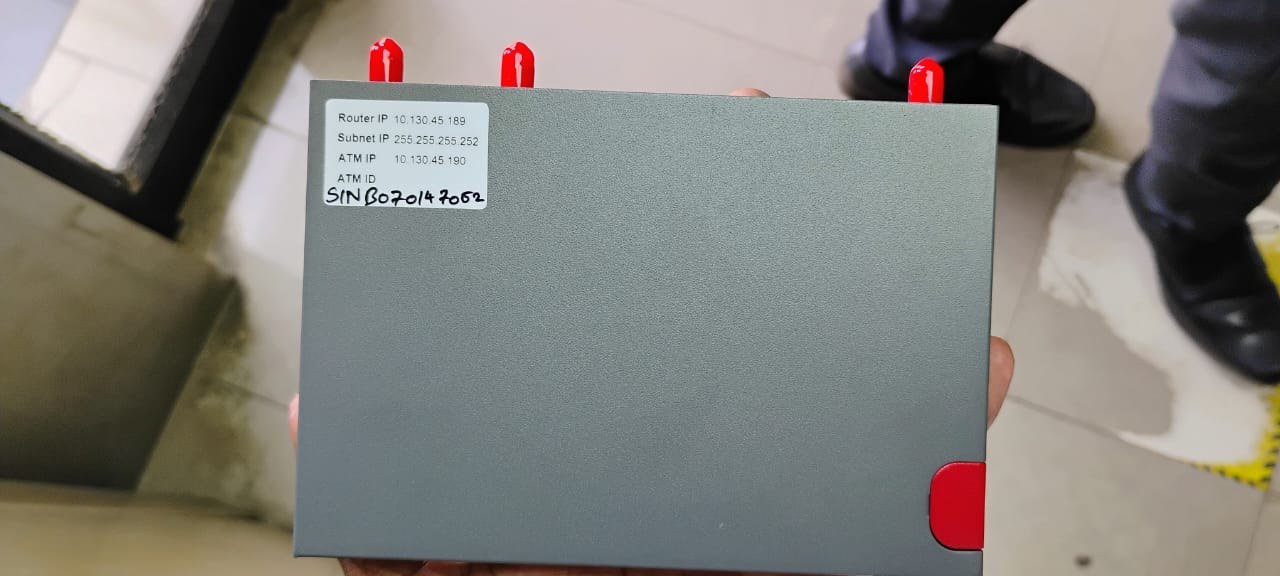 Router IP 10.130.45.189
Subnet IP 255.255.255.252
ATM IP 10.130.45.190
ATM ID
SINB070147062